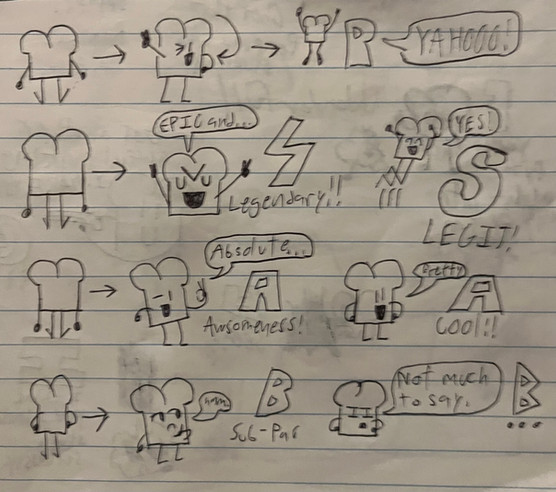 P YAHOOO!
EPIC and...
YES!
S
S
Legendary!!
LEGIT!
Absolute...
Pretty
A
A
Awsomeness!
Cool!!
Not much
to say.
B
B
Sub-Par
...